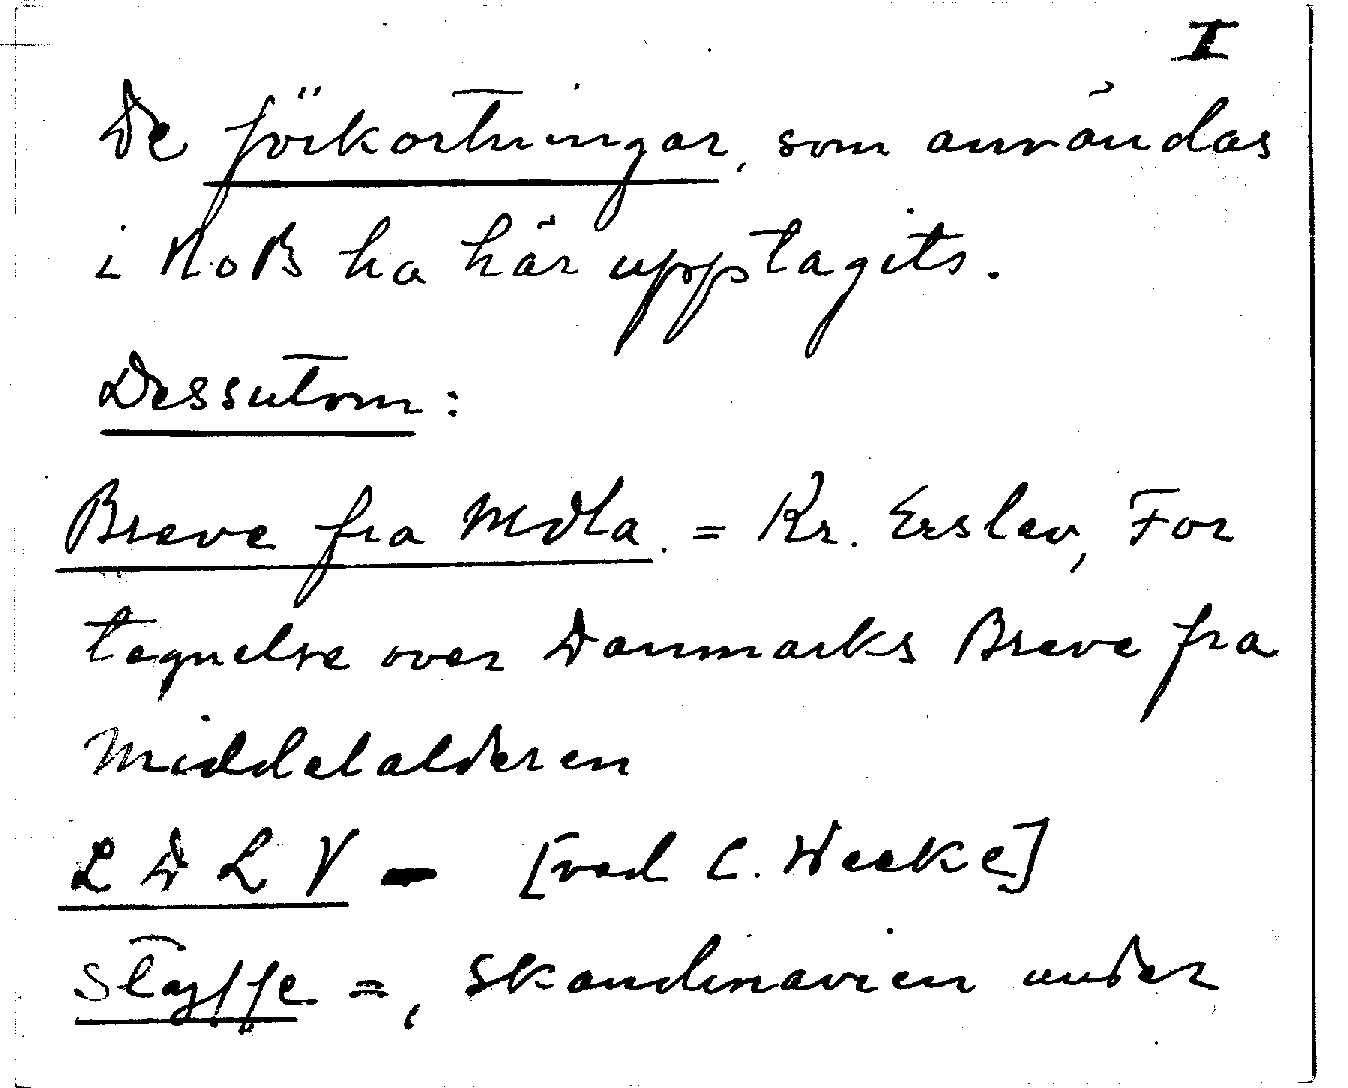 I
De förkortningar, som användas
i NoB ha här upptagits.
Dessutom:
Breve fra Mdla. = Kr. Erslev, For
tegnelse over Danmarks Breve fra
Middelalderen
LDLV - [ved C. Weeke]
Styffe =, Skandinavien under